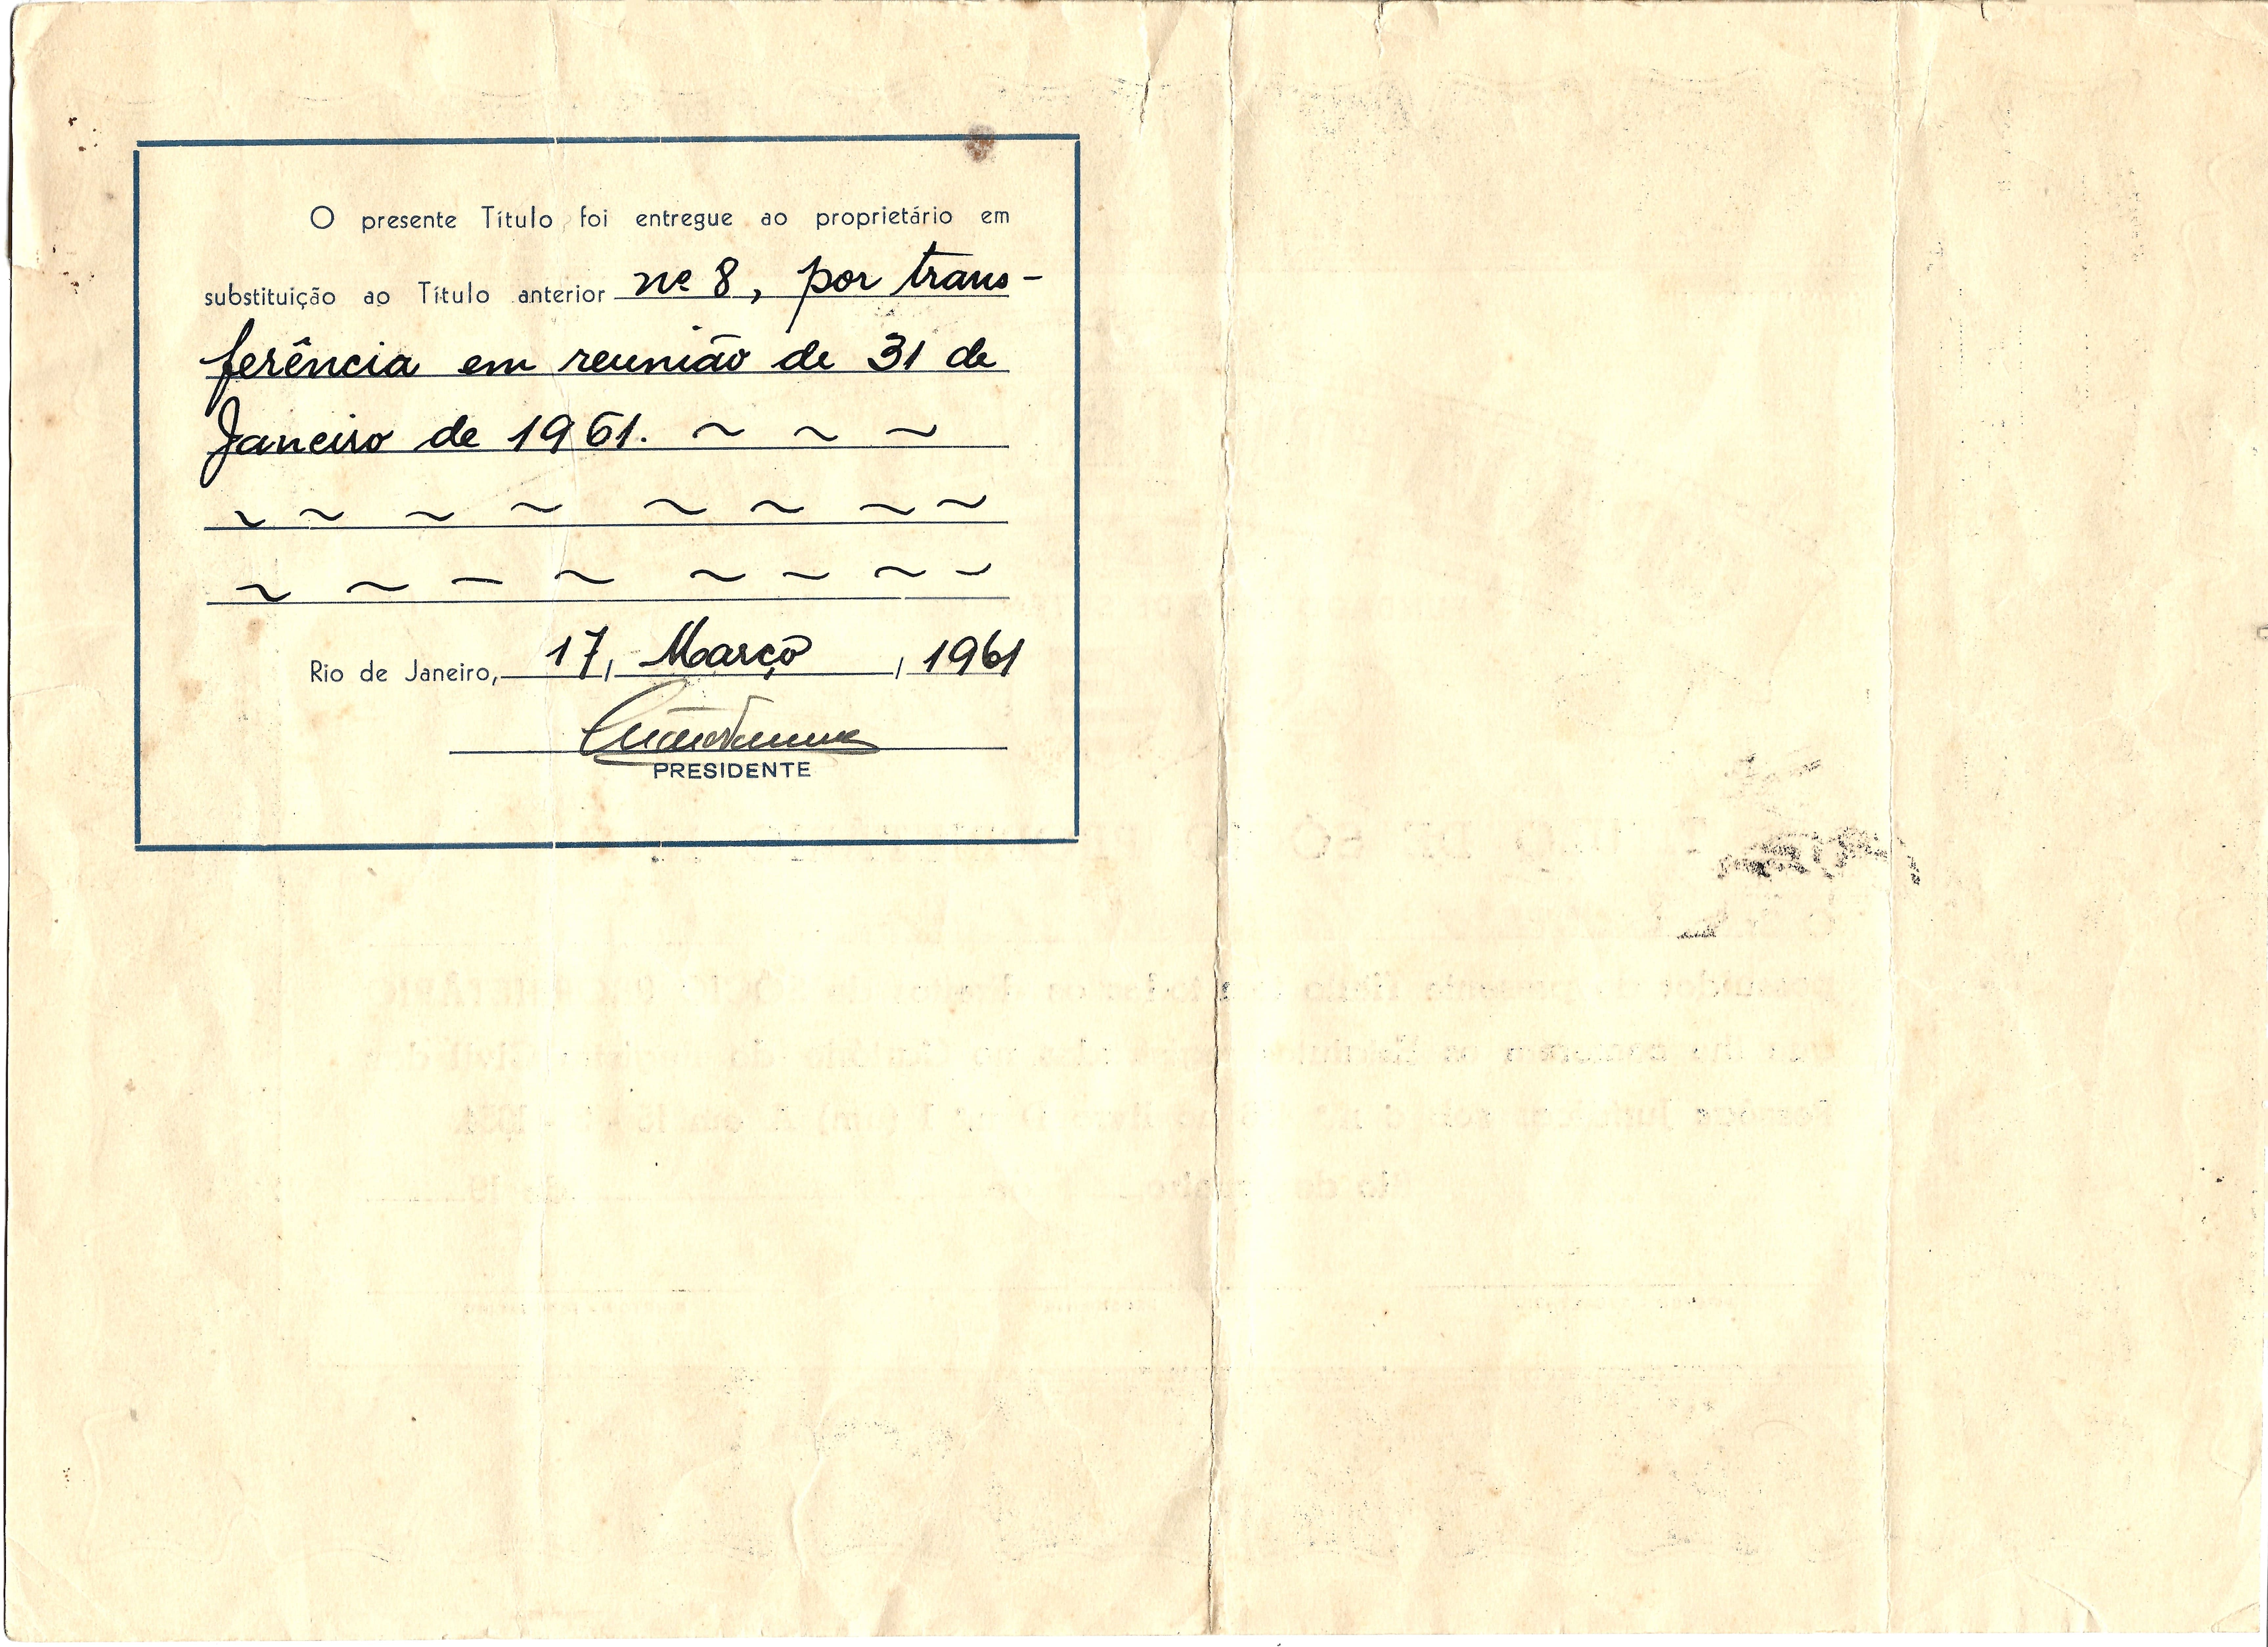 O presente Título foi entregue ao proprietário em
substituição ao Título anterior nº 8, por trans-
ferência em reunião de 31 de
Janeiro de 1961. ~ ~ ~
~ ~ ~ ~ ~ ~ ~ ~
~ ~ ~ ~ ~ ~ ~ ~
Rio de Janeiro, 17, Março, 1961
PRESIDENTE